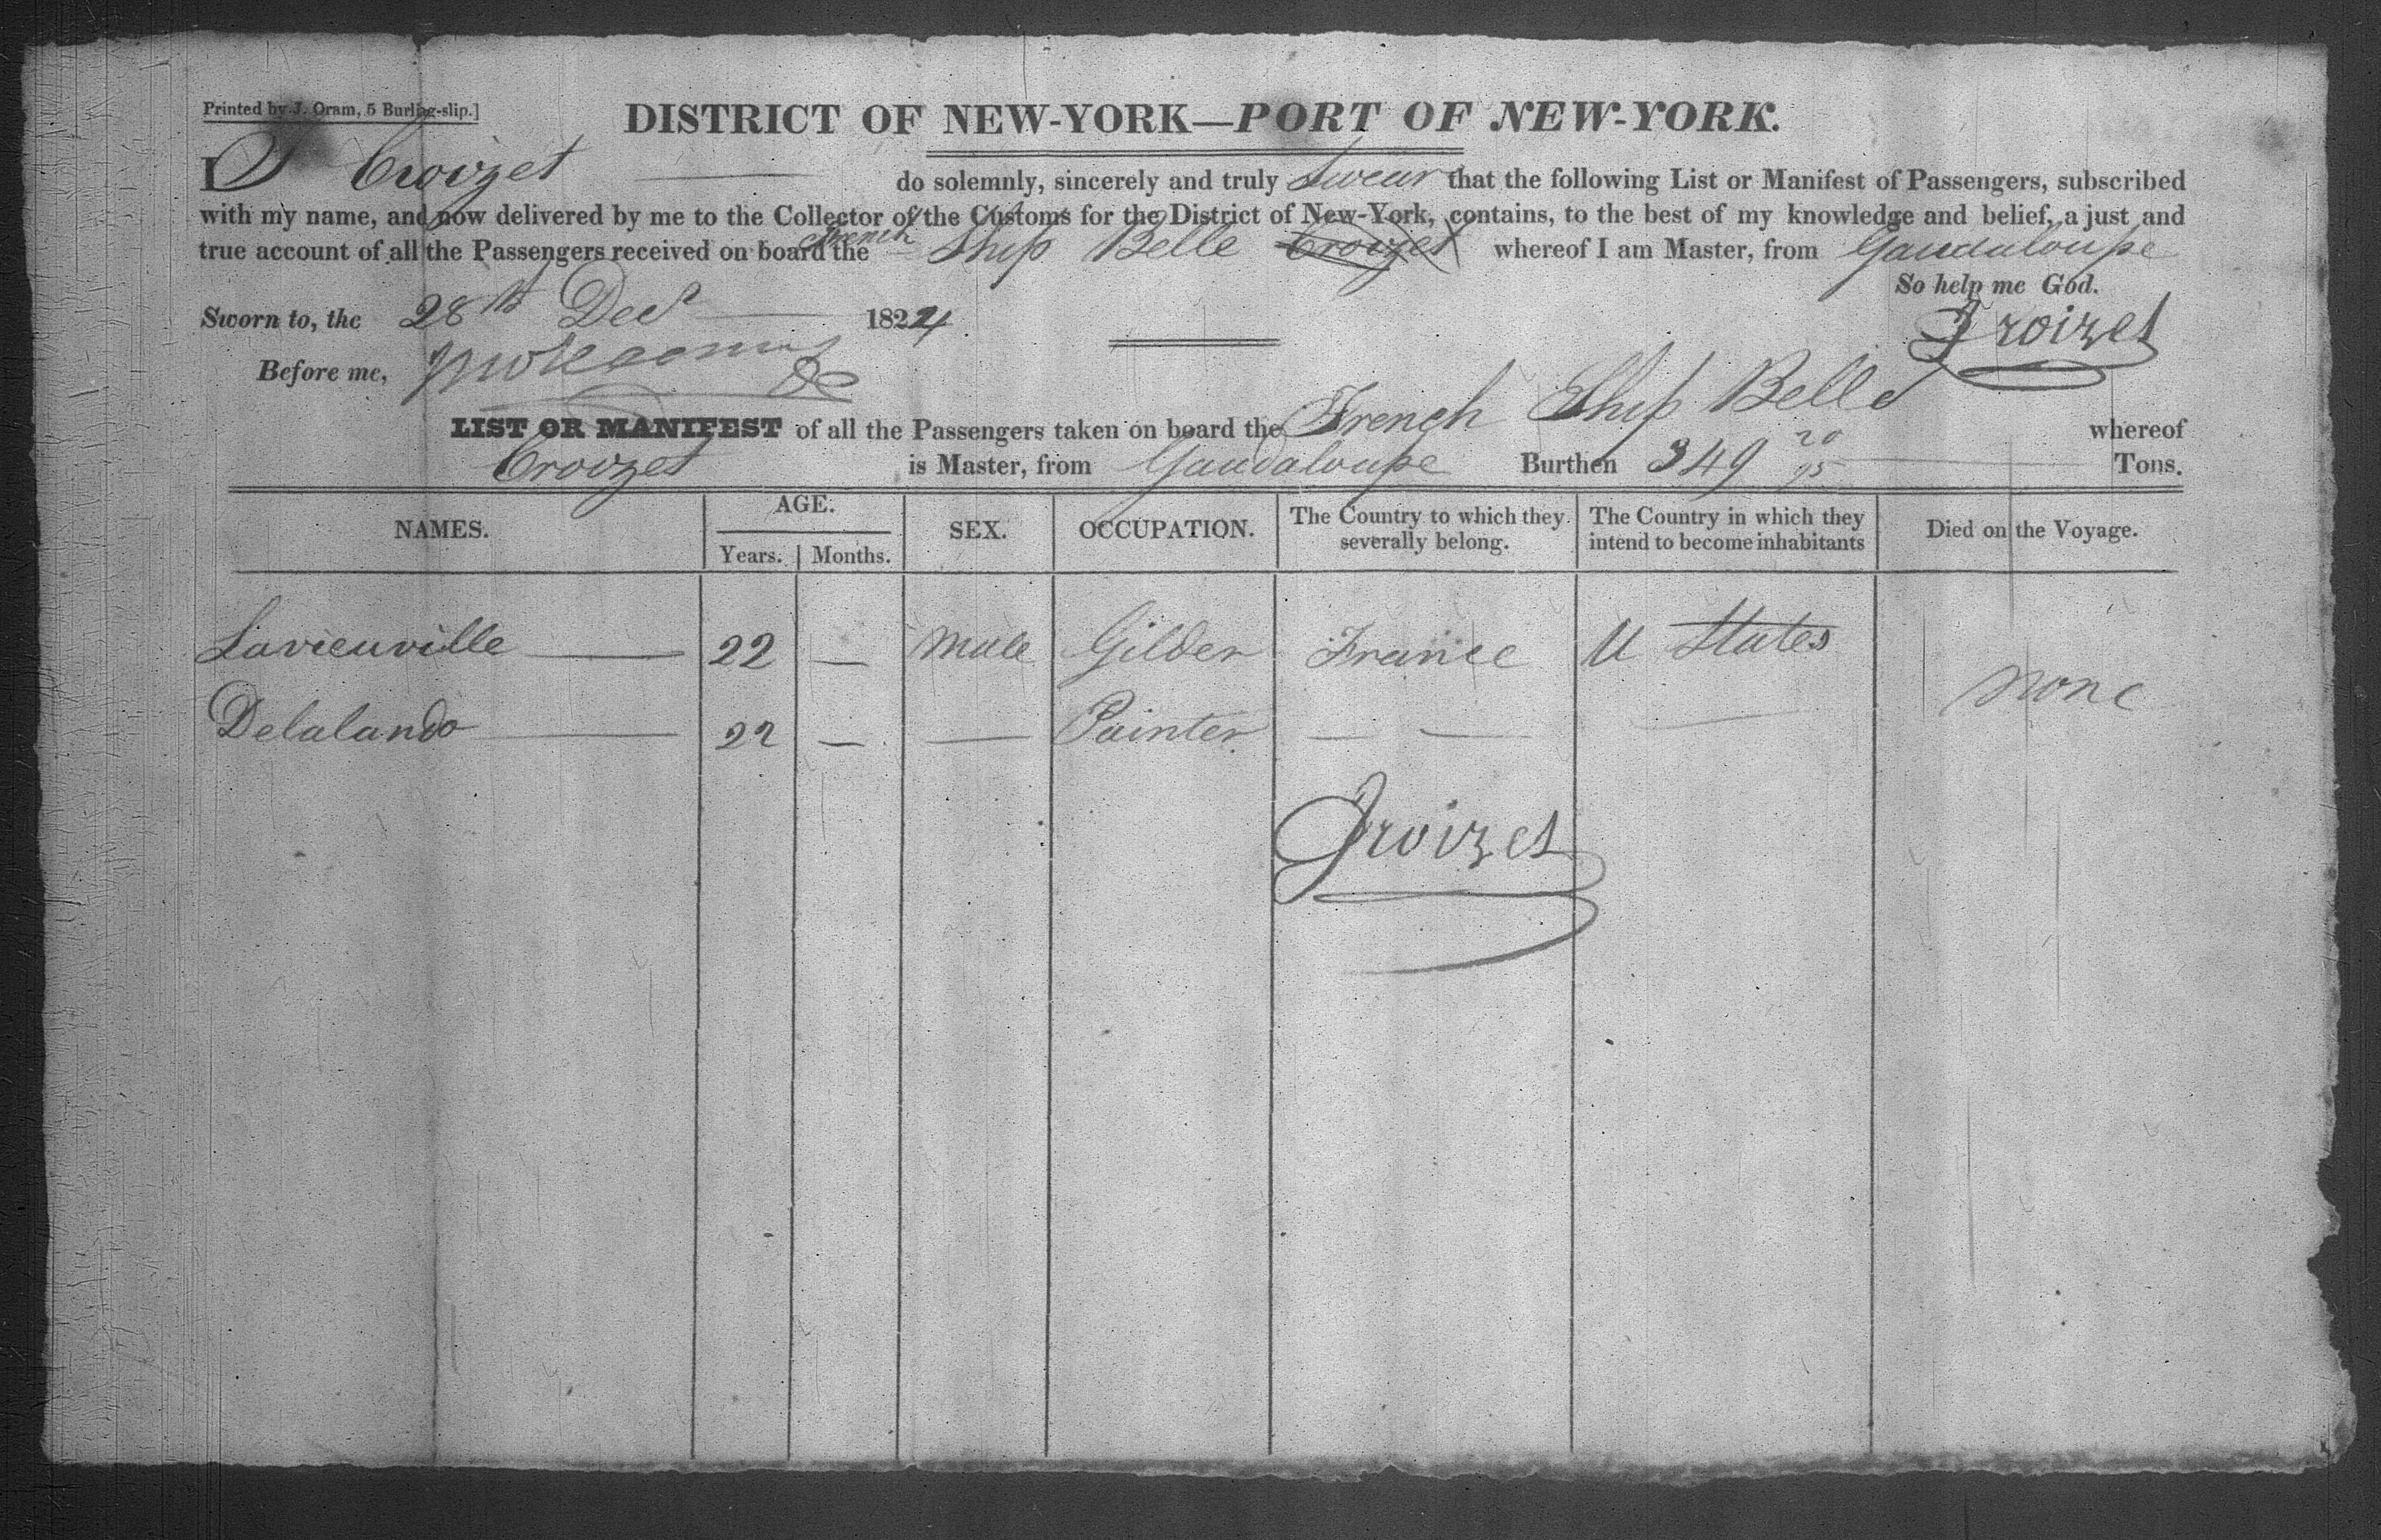 Printed by J. Oram, 5 Burling-slip.]
DISTRICT OF NEW-YORK—PORT OF NEW-YORK.
I J Croizet do solemnly, sincerely and truly Swear that the following List or Manifest of Passengers, subscribed
with my name, and now delivered by me to the Collector of the Customs for the District of New-York, contains, to the best of my knowledge and belief, a just and
true account of all the Passengers received on board the french Ship Belle Croizet whereof I am Master, from Gaudaloupe
So help me God.
Sworn to, the 28th Decr 1824
JCroizet
Before me,
LIST OR MANIFEST of all the Passengers taken on board the French Ship Belle whereof
Croizet is Master, from Gaudaloupe Burthen 349 20/95 Tons.
NAMES. AGE. SEX. OCCUPATION. The Country to which they severally belong. The Country in which they intend to become inhabitants Died on the Voyage.
Years. Months.
Lavieuville — 22 — Male Gilder France U States
None
Delalando — 22 — — Painter — — —
JCroizet